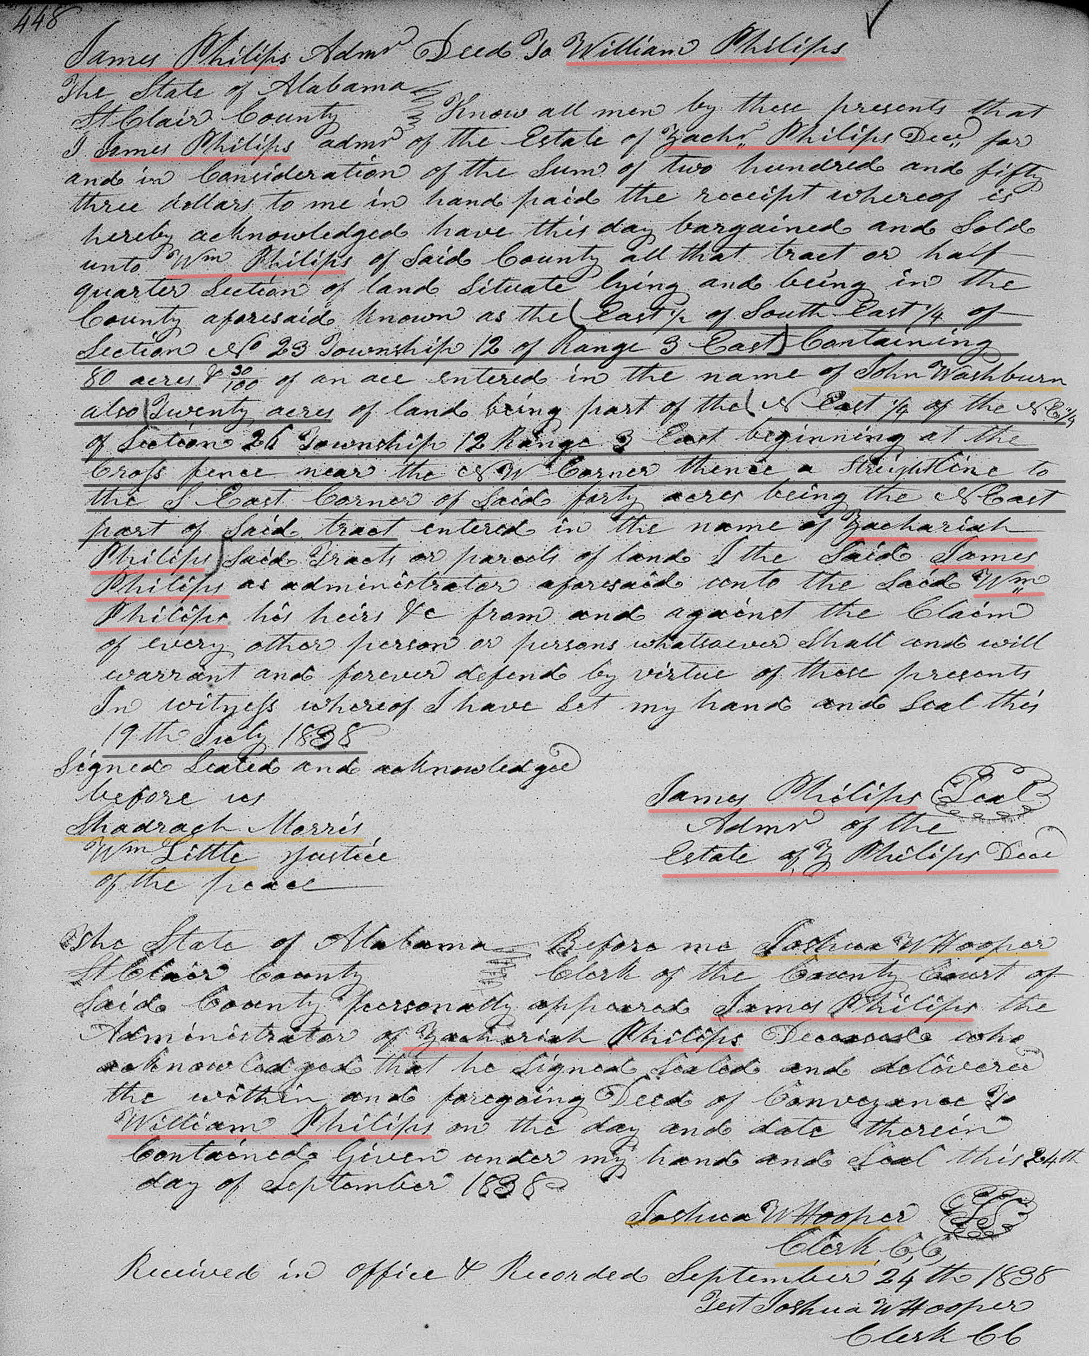 448
James Philips Admr Deed To William Philips
The State of Alabama
St Clair County Know all men by these presents that
I James Philips admr of the Estate of Zachr Philips Decd for
and in Consideration of the Sum of two hundred and fifty
three dollars to me in hand paid the receipt whereof is
hereby acknowledged have this day bargained and Sold
unto Wm Philips of Said County all that tract or half
quarter Section of land Situate lying and being in the
County aforesaid known as the (East 1/2 of South East 1/4 of
Section No 23 Township 12 of Range 3 East) Containing
80 acres & 30/100 of an ace entered in the name of John Washburn
also (Twenty acres of land being part of the (N East 1/4 of the NE 1/4
of Section 26 Township 12 Range 3 East beginning at the
Cross fence near the NW Corner thence a Streightline to
the S East Corner of Said forty acres being the N East
part of Said tract entered in the name of Zachariah
Philips) Said Tracts or parcels of land I the Said James
Philips as administrator aforesaid unto the Said Wm
Philips his heirs &c from and against the Claim
of every other person or persons whatsoever Shall and will
warrant and forever defend by virtue of these presents
In witness whereof I have Set my hand and Seal this
19th July 1838
Signed Sealed and acknowledged
before us
Shadrach Morris
Wm Little Justice
of the peace
James Philips Seal
Admr of the
Estate of Z Philips Decd
The State of Alabama Before me Joshua W Hooper
St Clair County Clerk of the County Court of
Said County personally appeared James Philips the
Administrator of Zachariah Philips Deceased who
acknowledged that he Signed Sealed and delivered
the within and foregoing Deed of Conveyance To
William Philips on the day and date therein
Contained Given under my hand and Seal this 24th
day of September 1838
Joshua W Hooper LS
Clerk CC,
Received in office & Recorded September 24th 1838
Test Joshua W Hooper
Clerk CC